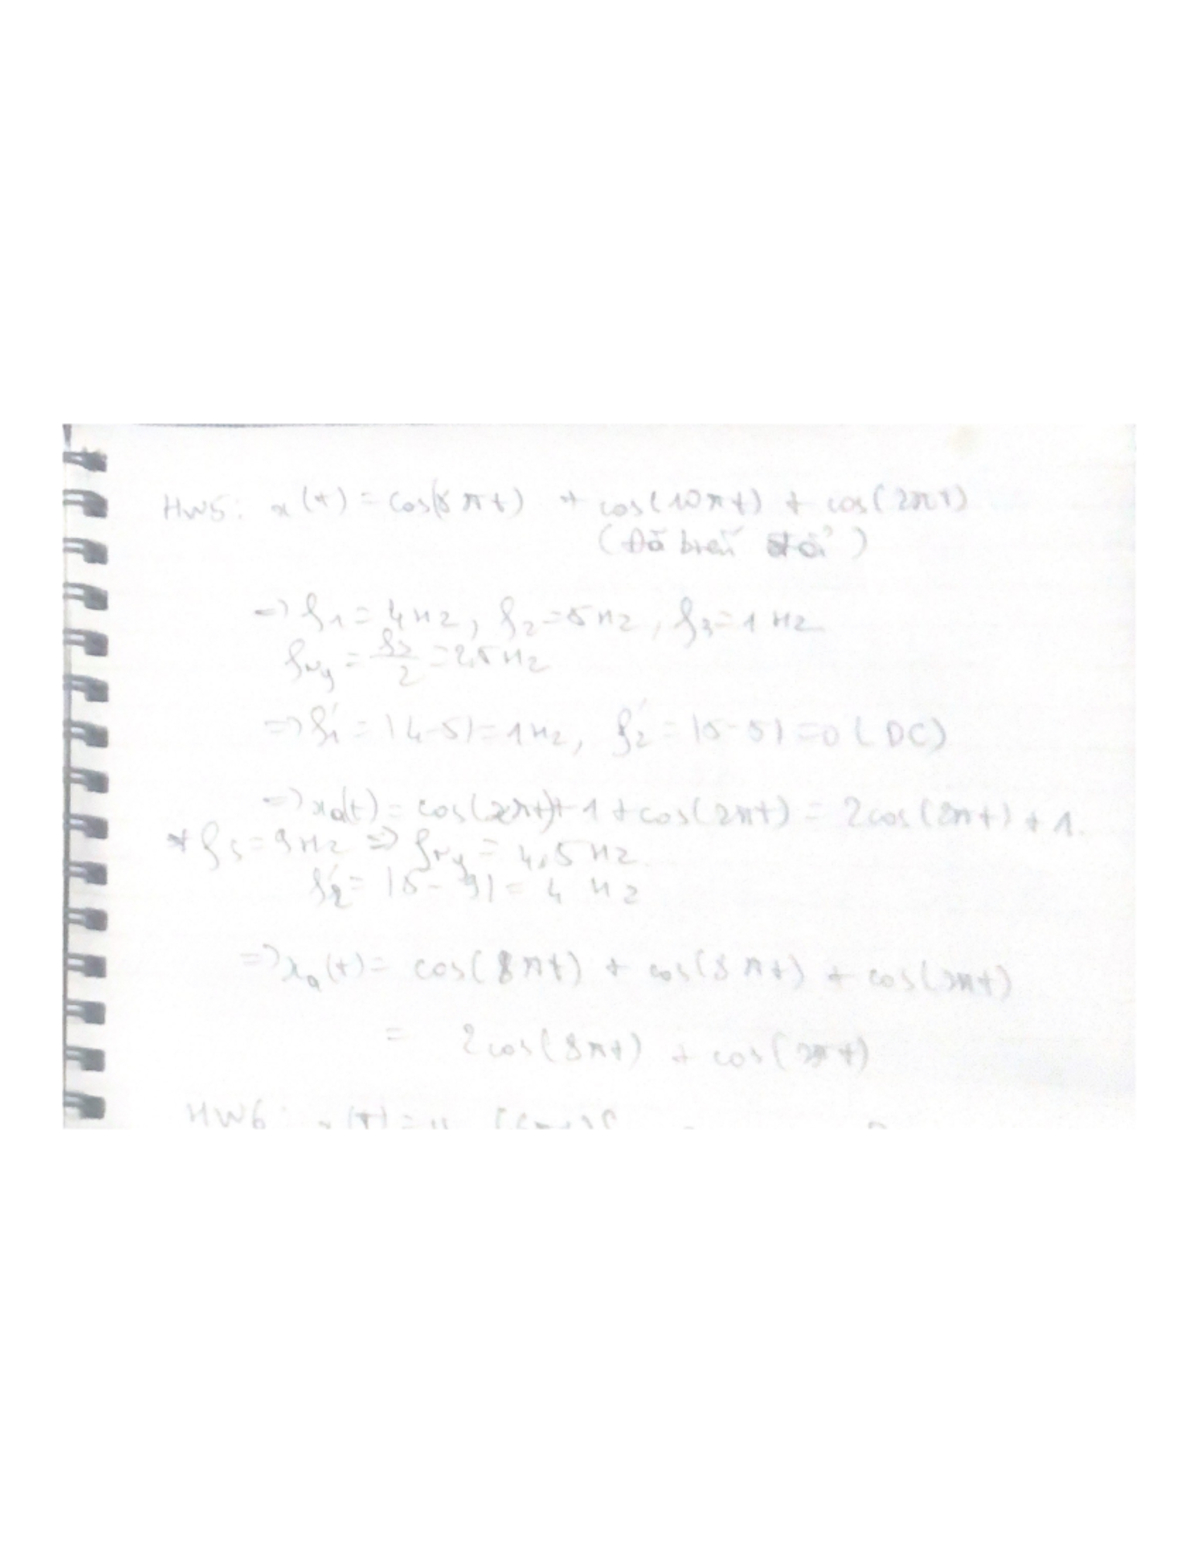 HW5: x(t) = cos(8πt) + cos(10πt) + cos(2πt)
(Đã biến đổi)
=> f1 = 4Hz, f2 = 5Hz, f3 = 1Hz
fNy = fs/2 = 2,5Hz
=> f1' = |4-5| = 1Hz, f2' = |5-5| = 0 (DC)
=> xa(t) = cos(2πt) + 1 + cos(2πt) = 2cos(2πt) + 1.
* fs = 9Hz => fNy = 4,5Hz.
f2' = |5-9| = 4 Hz
=> xa(t) = cos(8πt) + cos(8πt) + cos(2πt)
= 2cos(8πt) + cos(2πt)
HW6: x(t) =